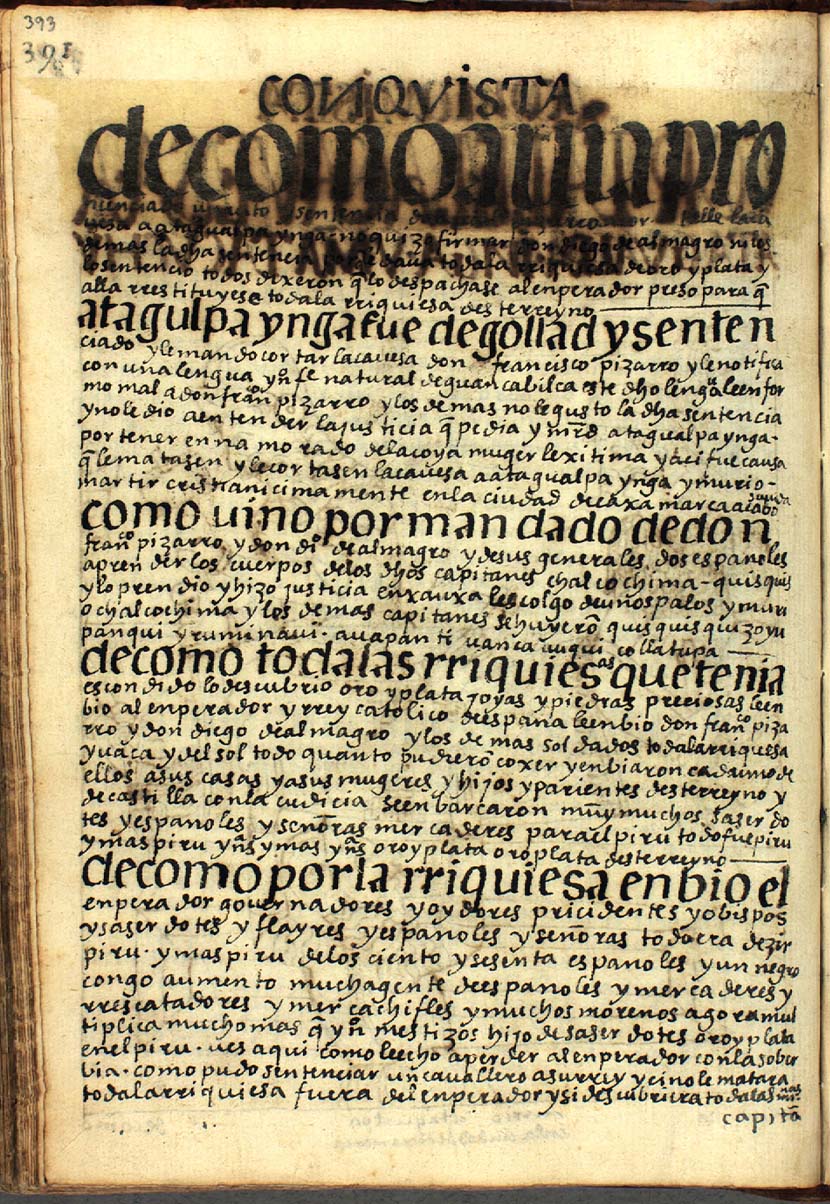 393
391
CONQVISTA
de como auia pro
nunciado un auto y sentencia don fran pizarro a cortalle la ca
uesa a atagualpa ynga. no quizo firmar don diego de almagro ni los
demas la dha sentencia porque daua toda la rriquiesa de oro y plata y
lo sentencio todos dixeron q̃ lo despachase al enperador preso para q̃
alla rrestituyese toda la rriquiesa desterreyno
atagulpa ynga fue degollad y senten
ciado y le mando cortar la cauesa don francisco pizarro y le notifica
con una lengua yn͠ felipe natural de guancabilca este dho lengua le enfor
mo mal a don fran͠co pizarro y los demas no le gusto la dha sentencia
y no le dio a entender la justicia q̃ pedia y mrd atagualpa ynga.
por tener ennamorado de la coya muger lexitima y aci fue causa
q̃ le matasen y le cortasen la cauesa a atagualpa ynga y murio
martir cristianicimamente en la ciudad de caxamarca acabo su uida
como uino por mandado de don
fran͠co pizarro y don di͠o de almagro y de sus generales dos espanoles
aprender los cuerpos de los dhos capitanes chalcochima - quisquis
y lo prendio y hizo justicia en xauxa les colgo de unos palos y muri
o chalcochima y los demas capitanes se huyerõ quisquis quizo yu
panqui y ruminaui. auapanti uanca auqui collatupa
de como todas las rriquiesas que tenia
escondido lo descubrio oro y plata joyas y piedras preciosas le en
bio al enperador y rrey catolico despaña le enbio don fran͠co piza
rro y don diego de almagro y los demas soldados toda la rriquiesa
y uaca y del sol todo quanto pudierõ coxer y enbiaron cada uno de
ellos a sus casas y a sus mugeres y hijos y parientes desterreyno y
de castilla con la cudicia se enbarcaron muy muchos saserdo
tes y espanoles y señoras mercaderes para el piru todo fue piru
y mas piru yn͠s y mas yn͠s oro y plata oro plata desterreyno
de como por la rriquiesa enbio el
enperador gouernadores y oydores pricidentes y obispos
y saserdotes y flayres y espanoles y señoras todo era dezir
piru. y mas piru de los ciento y sesenta espanoles y un negro
congo aumento mucha gente de espanoles y mercaderes y
rrescatadores y mercachifles y muchos morenos agora mul
tiplica mucho mas q̃ yn͠s mestizos hijo de saserdotes oro y plata
en el piru. ues aqui como le echo a perder al enperador con la sober
bia. como pudo sentenciar un cauallero a su rrey y ci no le matara
toda la rriquiesa fuera del enperador y si descubriera todas las minas
capitã